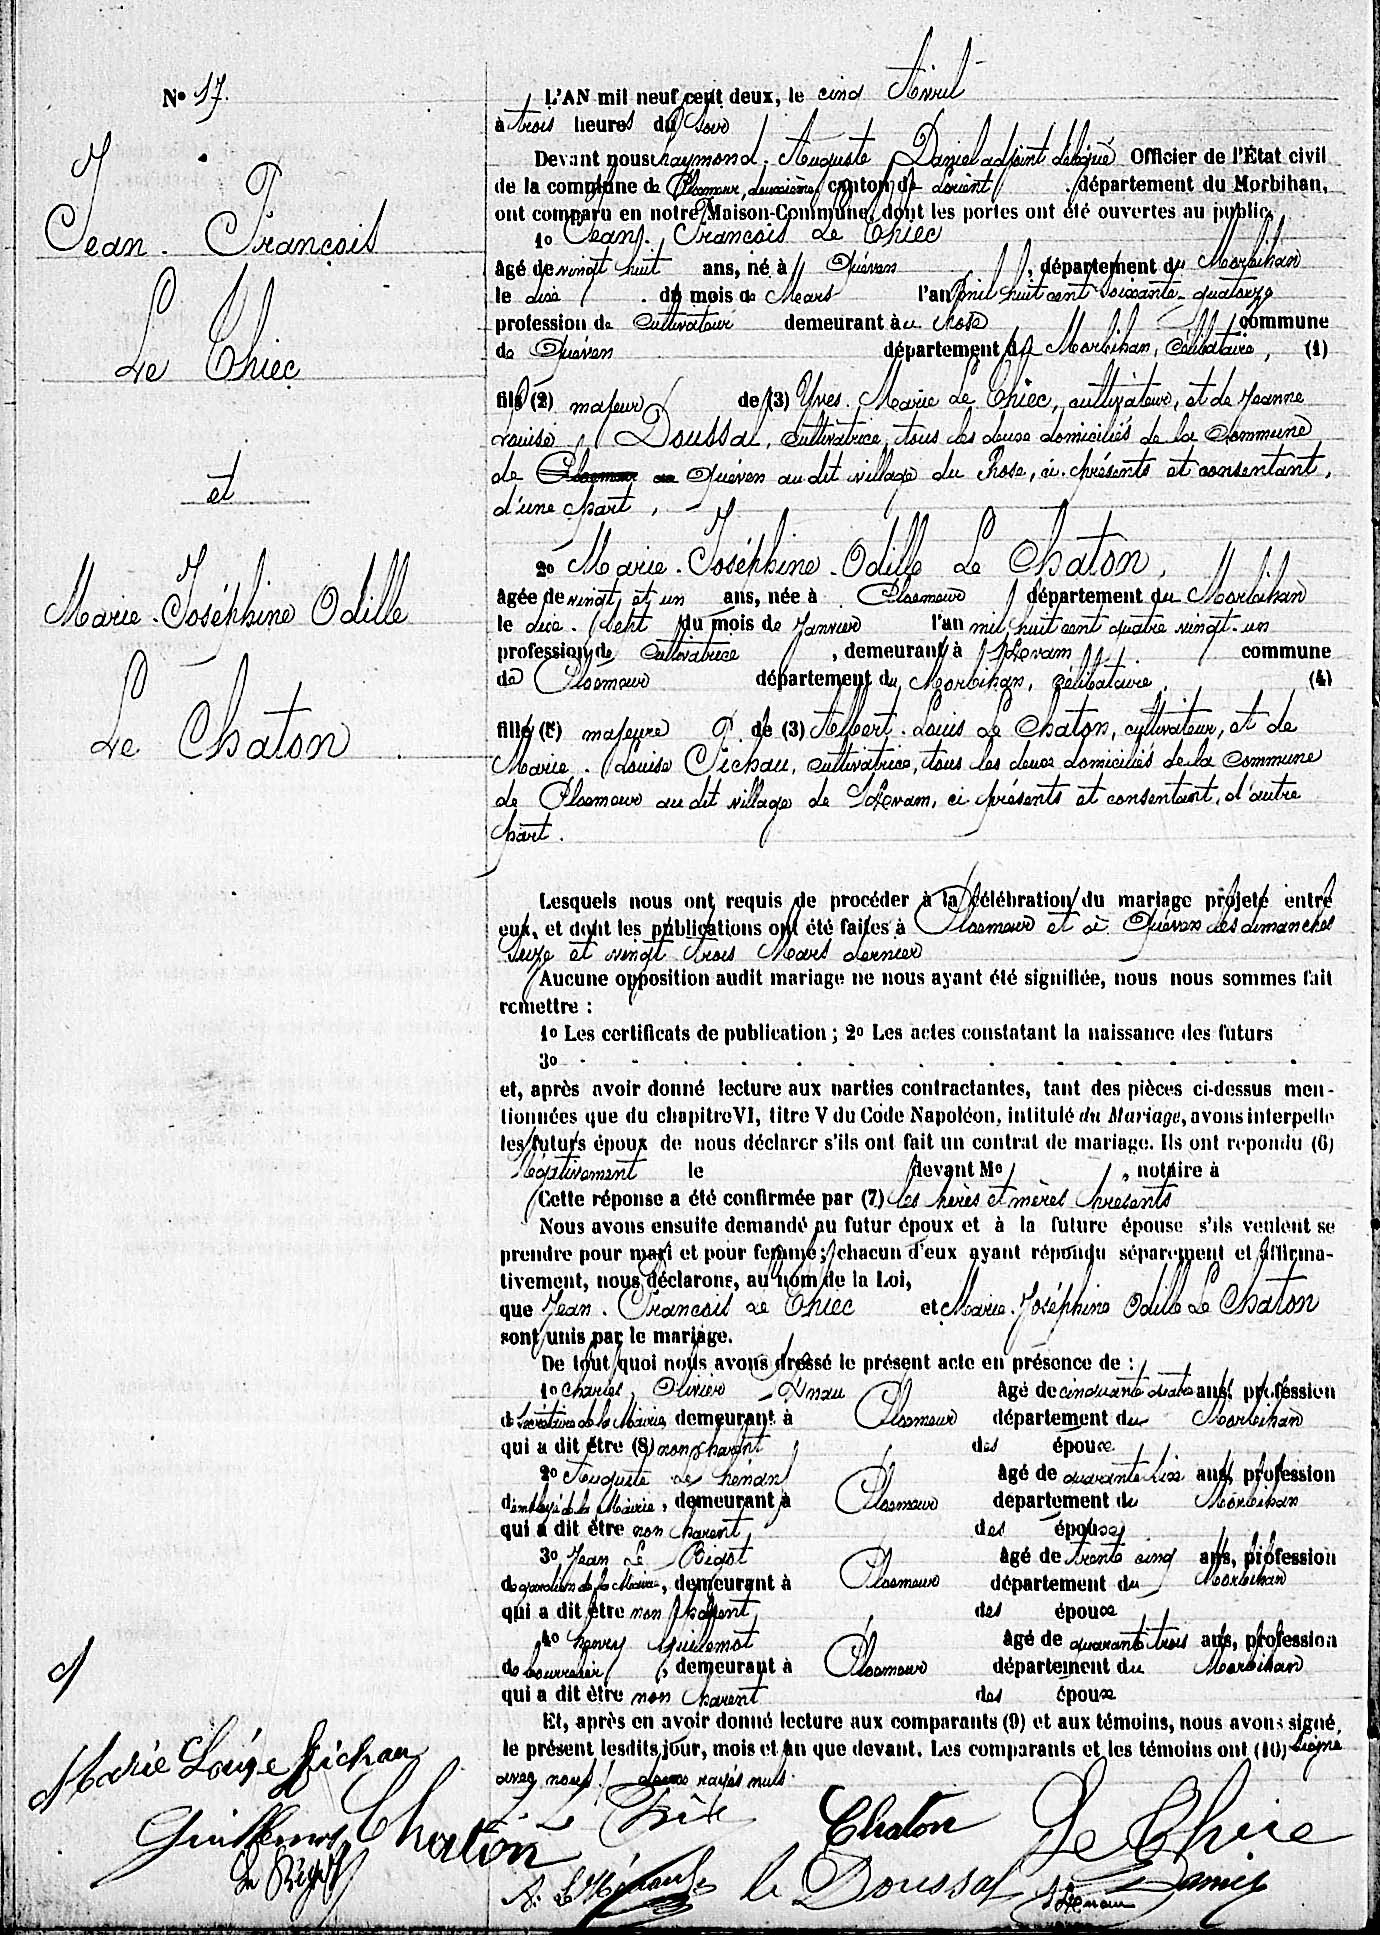 N° 17.
Jean-François
Le Thiec
et
Marie-Joséphine Odille
Le Chaton
L'AN mil neuf cent deux, le cinq Avril
à trois heures du soir
Devant nous Raymond, Auguste Daniel adjoint délégué Officier de l'État civil
de la commune de Ploemeur, deuxième canton de Lorient département du Morbihan,
ont comparu en notre Maison-Commune, dont les portes ont été ouvertes au public,
1o Jean-François Le Thiec
âgé de vingt huit ans, né à Quéven, département du Morbihan
le dix du mois de Mars l'an mil huit cent soixante-quatorze
profession de cultivateur demeurant à commune
de Quéven département du Morbihan, célibataire, (1)
fils (2) majeur de (3) Yves-Marie Le Thiec, cultivateur, et de Jeanne
Louise Doussal, cultivatrice, tous les deux domiciliés de la Commune
de Ploemeur de Quéven au dit village du Rose, ci-présents et consentant,
d'une part,
2o Marie-Joséphine-Odille Le Chaton,
âgée de vingt et un ans, née à Ploemeur département du Morbihan
le dix-sept du mois de Janvier l'an mil huit cent quatre vingt-un
profession de cultivatrice, demeurant à commune
de Ploemeur département du Morbihan, célibataire, (4)
fille (5) majeure de (3) Albert-Louis Le Chaton, cultivateur, et de
Marie-Louise Pichau, cultivatrice, tous les deux domiciliés de la Commune
de Ploemeur au dit village de ci présents et consentant, d'autre
part.
Lesquels nous ont requis de procéder à la célébration du mariage projeté entre
eux, et dont les publications ont été faites à Ploemeur et à Quéven les dimanches
seize et vingt trois Mars dernier
Aucune opposition audit mariage ne nous ayant été signifiée, nous nous sommes fait
remettre :
1o Les certificats de publication ; 2o Les actes constatant la naissance des futurs
3o
et, après avoir donné lecture aux parties contractantes, tant des pièces ci-dessus men-
tionnées que du chapitre VI, titre V du Code Napoléon, intitulé du Mariage, avons interpelle
les futurs époux de nous déclarer s'ils ont fait un contrat de mariage. Ils ont repondu (6)
Négativement le devant Me , notaire à
Cette réponse a été confirmée par (7) les pères et mères présents
Nous avons ensuite demandé au futur époux et à la future épouse s'ils veulent se
prendre pour mari et pour femme ; chacun d'eux ayant répondu séparement et affirma-
tivement, nous déclarons, au nom de la Loi,
que Jean-François Le Thiec et Marie-Joséphine Odille Le Chaton
sont unis par le mariage.
De tout quoi nous avons dressé le présent acte en présence de :
1o Charles, Olivier âgé de cinquante quatre ans, profession
de Secrétaire de la Mairie, demeurant à Ploemeur département du Morbihan
qui a dit être (8) non parent des époux
2o Auguste Le Hénanf âgé de quarante six ans, profession
d'employé de la Mairie, demeurant à Ploemeur département du Morbihan
qui a dit être non parent des époux
3o Jean Le Bigot âgé de trente cinq ans, profession
de gardien de la Mairie, demeurant à Ploemeur département du Morbihan
qui a dit être non parent des époux
4o Henry Guillemot âgé de quarante trois ans, profession
de bourrelier, demeurant à Ploemeur département du Morbihan
qui a dit être non parent des époux
Et, après en avoir donné lecture aux comparants (9) et aux témoins, nous avons signé
le présent lesdits jour, mois et an que devant. Les comparants et les témoins ont (10) signé
avec nous. deux rayés nuls.
Marie Louise Pichau
Chaton Le Thiec
Guillemot Chaton
Le Bigot
le Doussal Daniel